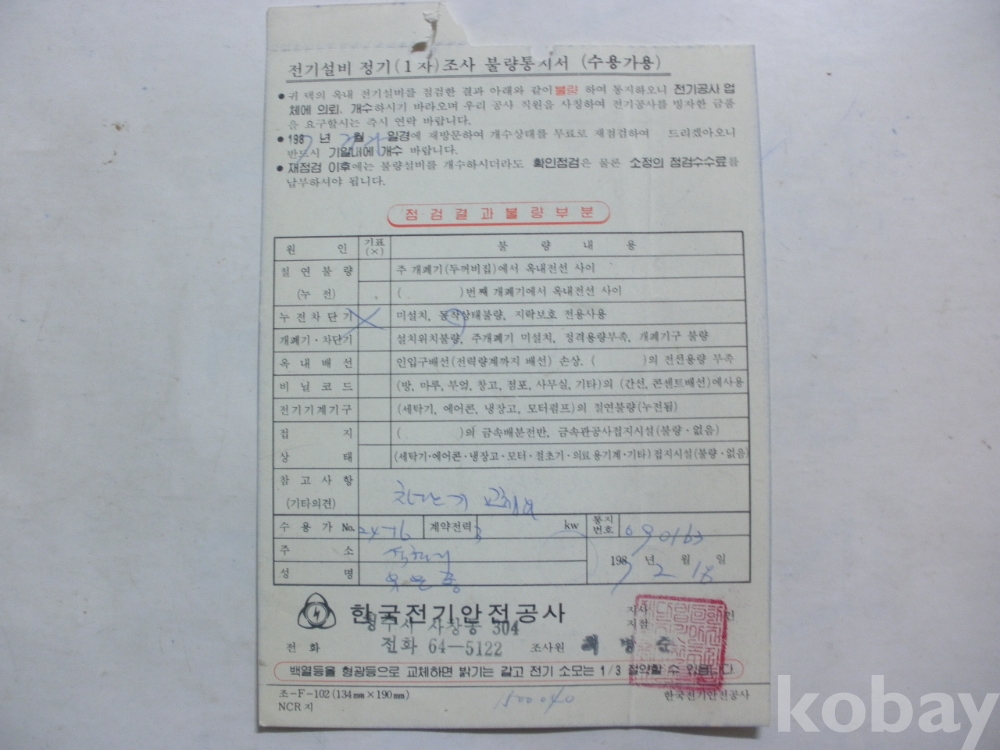 전기설비 정기(1차)조사 불량통지서 (수용가용)
● 귀 댁의 옥내 전기설비를 점검한 결과 아래와 같이 불량 하여 통지하오니 전기공사 업
체에 의뢰, 개수하시기 바라오며 우리 공사 직원을 사칭하여 전기공사를 빙자한 금품
을 요구할시는 즉시 연락 바랍니다.
● 1987 년 월 일경에 재방문하여 개수상태를 무료로 재점검하여 드리겠아오니
반드시 기일내에 개수 바랍니다.
● 재점검 이후에는 불량설비를 개수하시더라도 확인점검은 물론 소정의 점검수수료를
납부하셔야 됩니다.
점검결과불량부분
원 인 기표(×) 불 량 내 용
절연불량 주 개폐기(두꺼비집)에서 옥내전선 사이
(누 전) ( )번째 개폐기에서 옥내전선 사이
누전차단기 × 미설치, 동작상태불량, 지락보호 전용사용
개폐기·차단기 설치위치불량, 주개폐기 미설치, 정격용량부족, 개폐기구 불량
옥내배선 인입구배선(전력량계까지 배선) 손상, ( )의 전선용량 부족
비닐코드 (방, 마루, 부엌, 창고, 점포, 사무실, 기타)의 (간선, 콘센트배선)에사용
전기기계기구 (세탁기, 에어콘, 냉장고, 모터펌프)의 절연불량(누전됨)
접 지 ( )의 금속배분전반, 금속관공사접지시설(불량·없음)
상 태 (세탁기·에어콘·냉장고·모터·절초기·의료용기계·기타)접지시설(불량·없음)
참고사항
(기타의견) 차단기 교체요
수용가 No. 2476 계약전력 3 kw 통지번호 090163
주 소
성 명
1987 년 2 월 18 일
한국전기안전공사
청주시 사창동 304
전화 전화 64-5122 조사원
지사
지점 인
백열등을 형광등으로 교체하면 밝기는 같고 전기 소모는 1/3 절약할 수 있읍니다
조-F-102(134㎜×190㎜) 한국전기안전공사
NCR지
kobay